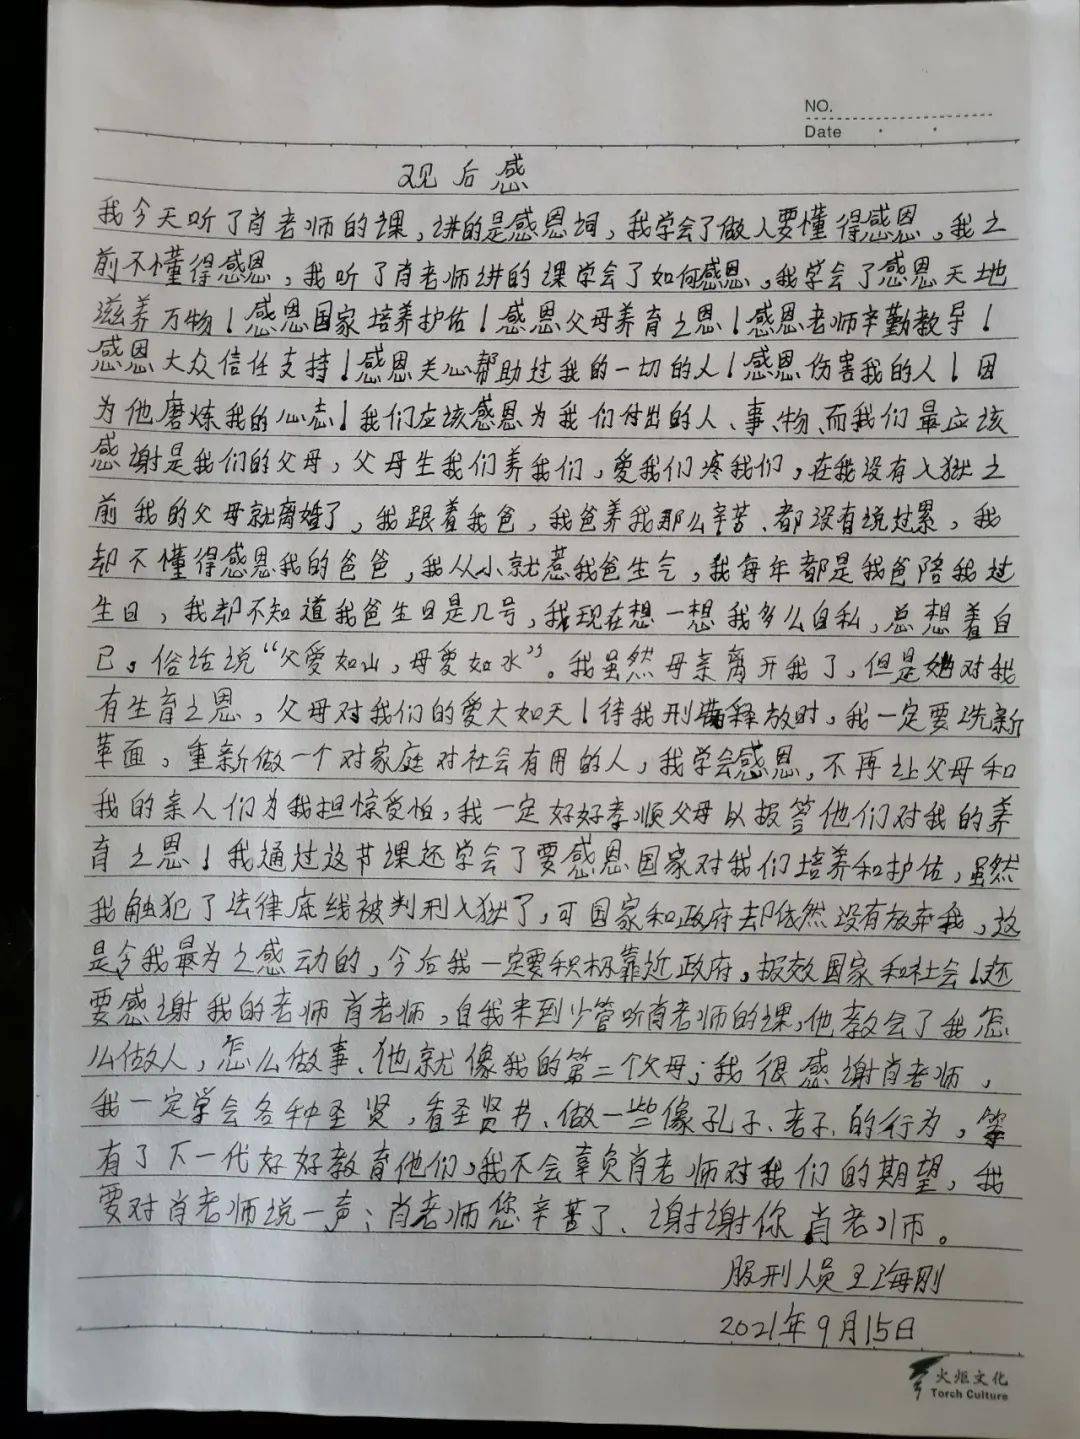 NO.
Date
观后感
我今天听了肖老师的课，讲的是感恩词，我学会了做人要懂得感恩，我之
前不懂得感恩，我听了肖老师讲的课学会了如何感恩，我学会了感恩天地
滋养万物！感恩国家培养护佑！感恩父母养育之恩！感恩老师辛勤教导！
感恩大众信任支持！感恩关心帮助过我的一切的人！感恩伤害我的人！因
为他磨炼我的心志！我们应该感恩为我们付出的人、事、物、而我们最应该
感谢是我们的父母，父母生我们养我们，爱我们疼我们，在我没有入狱之
前我的父母就离婚了，我跟着我爸，我爸养我那么辛苦、都没有说过累，我
却不懂得感恩我的爸爸，我从小就惹我爸生气，我每年都是我爸陪我过
生日，我却不知道我爸生日是几号，我现在想一想我多么自私，总想着自
己。俗话说“父爱如山，母爱如水”。我虽然母亲离开我了，但是她对我
有生育之恩，父母对我们的爱大如天！待我刑满释放时，我一定要洗新
革面，重新做一个对家庭对社会有用的人，我学会感恩，不再让父母和
我的亲人们为我担惊受怕，我一定好好孝顺父母以报答他们对我的养
育之恩！我通过这节课还学会了要感恩国家对我们培养和护佑，虽然
我触犯了法律底线被判刑入狱了，可国家和政府却依然没有放弃我，这
是令我最为之感动的，今后我一定要积极靠近政府，报效国家和社会！还
要感谢我的老师肖老师，自我来到少管听肖老师的课，他教会了我怎
么做人，怎么做事、他就像我的第二个父母；我很感谢肖老师，
我一定学会各种圣贤，看圣贤书、做一些像孔子、老子、的行为，等
有了下一代好好教育他们，我不会辜负肖老师对我们的期望，我
要对肖老师说一声；肖老师您辛苦了、谢谢你肖老师。
服刑人员王海刚
2021年9月15日
火炬文化
Torch Culture